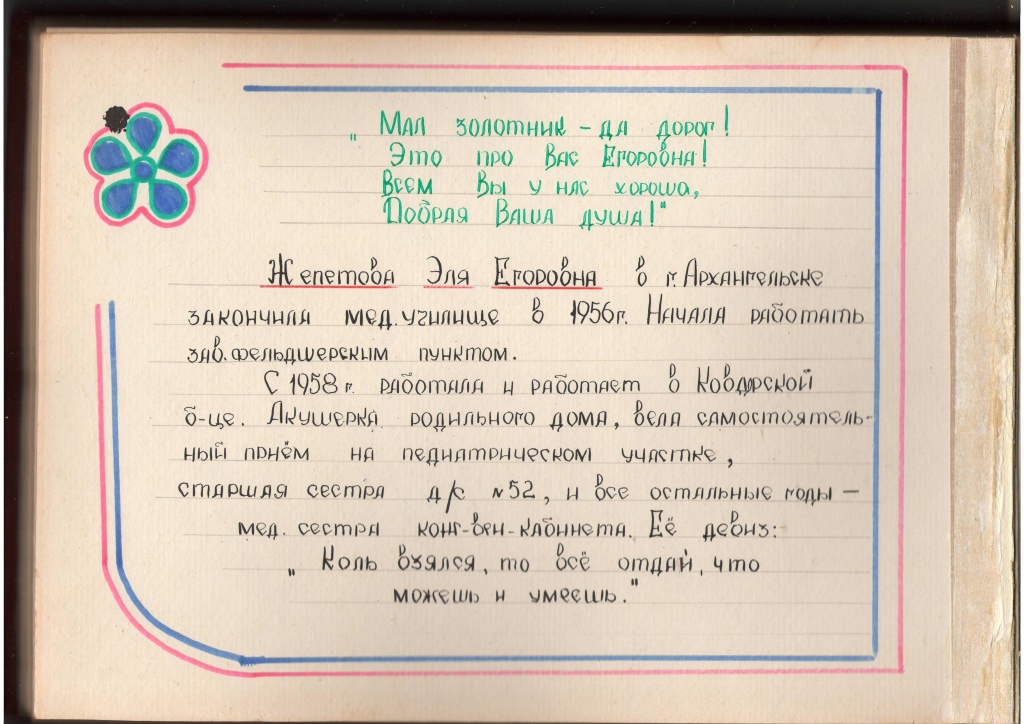 „Мал золотник – да дорог!
Это про Вас Егоровна!
Всем Вы у нас хороша,
Добрая Ваша душа!"
Жепетова Эля Егоровна в г. Архангельске
закончила мед. училище в 1956г. Начала работать
зав. фельдшерским пунктом.
С 1958 г. работала и работает в Ковдорской
б-це. Акушерка родильного дома, вела самостоятель-
ный приём на педиатрическом участке,
старшая сестра д/с №52, и все остальные годы –
мед. сестра кож-вен-кабинета. Её девиз:
„Коль взялся, то всё отдай, что
можешь и умеешь."